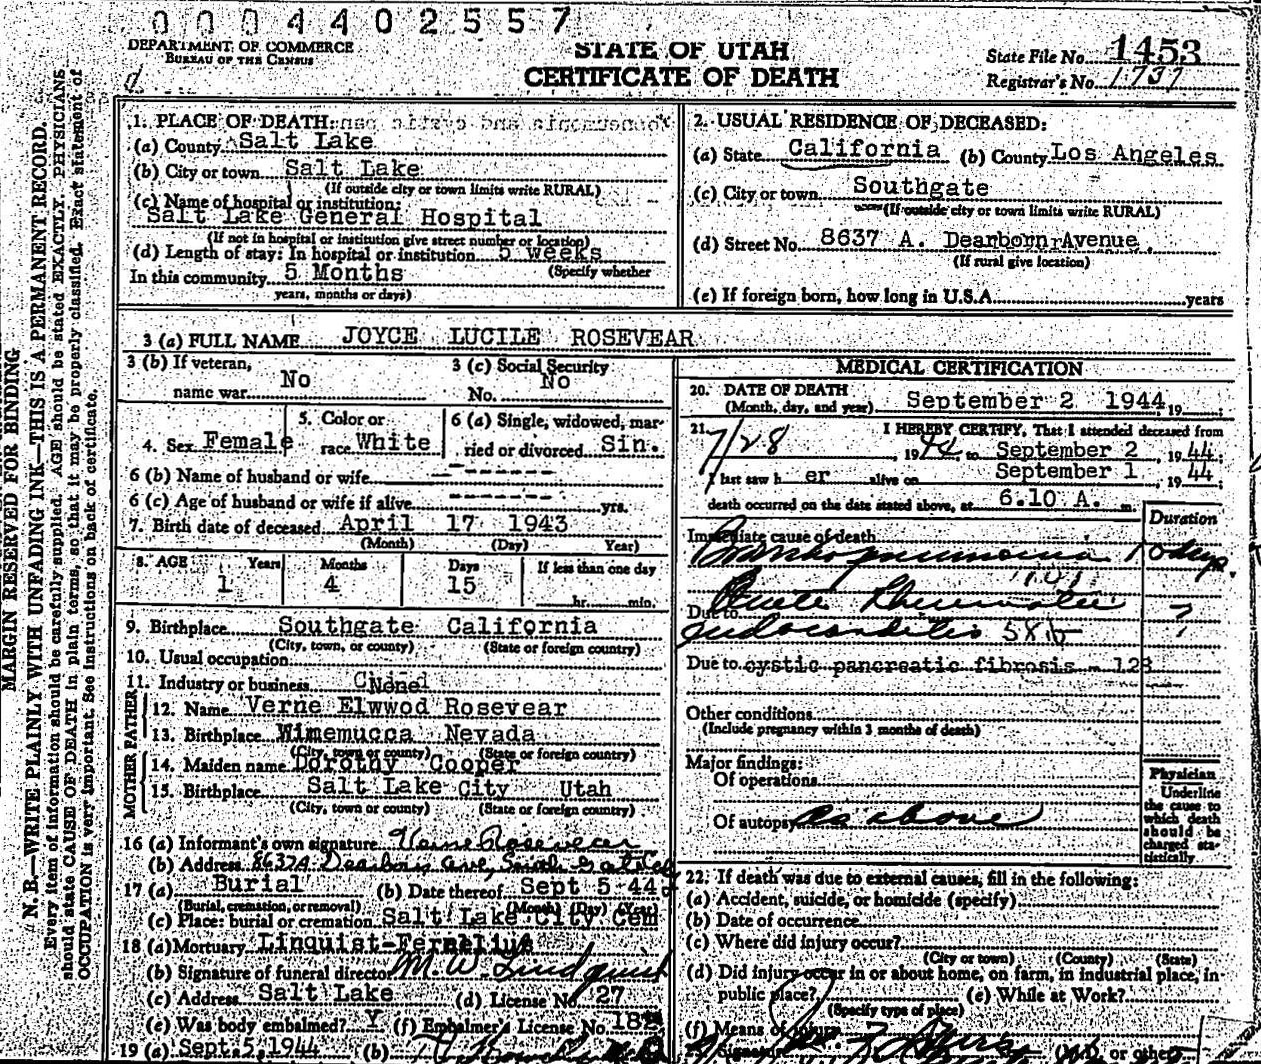 0004402557
DEPARTMENT OF COMMERCE
BUREAU OF THE CENSUS
STATE OF UTAH
CERTIFICATE OF DEATH
State File No. 1453
Registrar's No. 1737
MARGIN RESERVED FOR BINDING
N. B.—WRITE PLAINLY WITH UNFADING INK—THIS IS A PERMANENT RECORD.
Every item of information should be carefully supplied. AGE should be stated EXACTLY. PHYSICIANS
should state CAUSE OF DEATH in plain terms, so that it may be properly classified. Exact statement of
OCCUPATION is very important. See instructions on back of certificate.
1. PLACE OF DEATH:
(a) County Salt Lake
(b) City or town Salt Lake
(If outside city or town limits write RURAL)
(c) Name of hospital or institution:
Salt Lake General Hospital
(If not in hospital or institution give street number or location)
(d) Length of stay: In hospital or institution 5 weeks
(Specify whether
In this community 5 Months
years, months or days)
2. USUAL RESIDENCE OF DECEASED:
(a) State California (b) County Los Angeles
(c) City or town Southgate
(If outside city or town limits write RURAL)
(d) Street No. 8637 A. Dearborn Avenue
(If rural give location)
(e) If foreign born, how long in U.S.A. years
3 (a) FULL NAME JOYCE LUCILE ROSEVEAR
3 (b) If veteran, name war No
3 (c) Social Security No. No
4. Sex Female
5. Color or race White
6 (a) Single, widowed, married or divorced Sin.
6 (b) Name of husband or wife -------
6 (c) Age of husband or wife if alive ------- yrs.
7. Birth date of deceased April 17 1943
(Month) (Day) Year)
8. AGE Years Months Days If less than one day
1 4 15 hr. min.
9. Birthplace Southgate California
(City, town, or county) (State or foreign country)
10. Usual occupation
11. Industry or business
12. Name Verne Elwwod Rosevear
FATHER
13. Birthplace Wimemucca Nevada
(City, town or county) (State or foreign country)
14. Maiden name Dorothy Cooper
MOTHER
15. Birthplace Salt Lake City Utah
(City, town, or county) (State or foreign country)
16 (a) Informant's own signature Verne Rosevear
(b) Address 8637A Dearborn Ave, South Gate Cal
17 (a) Burial (b) Date thereof Sept 5-44
(Burial, cremation, or removal) (Month) (Day) (Year)
(c) Place: burial or cremation Salt Lake City Cem
18 (a) Mortuary Linquist-Fernelius
(b) Signature of funeral director M. W. Lindquist
(c) Address Salt Lake (d) License No. 27
(e) Was body embalmed? Y (f) Embalmer's License No.
19 (a) Sept. 5, 1944 (b)
MEDICAL CERTIFICATION
20. DATE OF DEATH
(Month, day, and year) September 2 1944, 19
21. I HEREBY CERTIFY, That I attended deceased from
7/28, 1944, to September 2, 1944;
I last saw h er alive on September 1, 1944;
death occurred on the date stated above, at 6.10 A. m.
Duration
Immediate cause of death
Bronchopneumonia 10 days.
107
Due to Acute Rheumatic ?
endocarditis 58b
Due to cystic pancreatic fibrosis - 128
Other conditions
(Include pregnancy within 3 months of death)
Major findings:
Of operations
Of autopsy as above
Physician
Underline
the cause to
which death
should be
charged sta-
tistically
22. If death was due to external causes, fill in the following:
(a) Accident, suicide, or homicide (specify)
(b) Date of occurrence
(c) Where did injury occur?
(City or town) (County) (State)
(d) Did injury occur in or about home, on farm, in industrial place, in
public place? (e) While at Work?
(Specify type of place)
(f) Means of injury